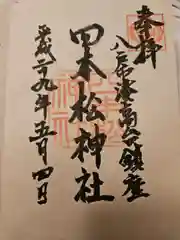 奉拝
八戸市湊高台鎮座
四本松神社
平成二九年五月四日